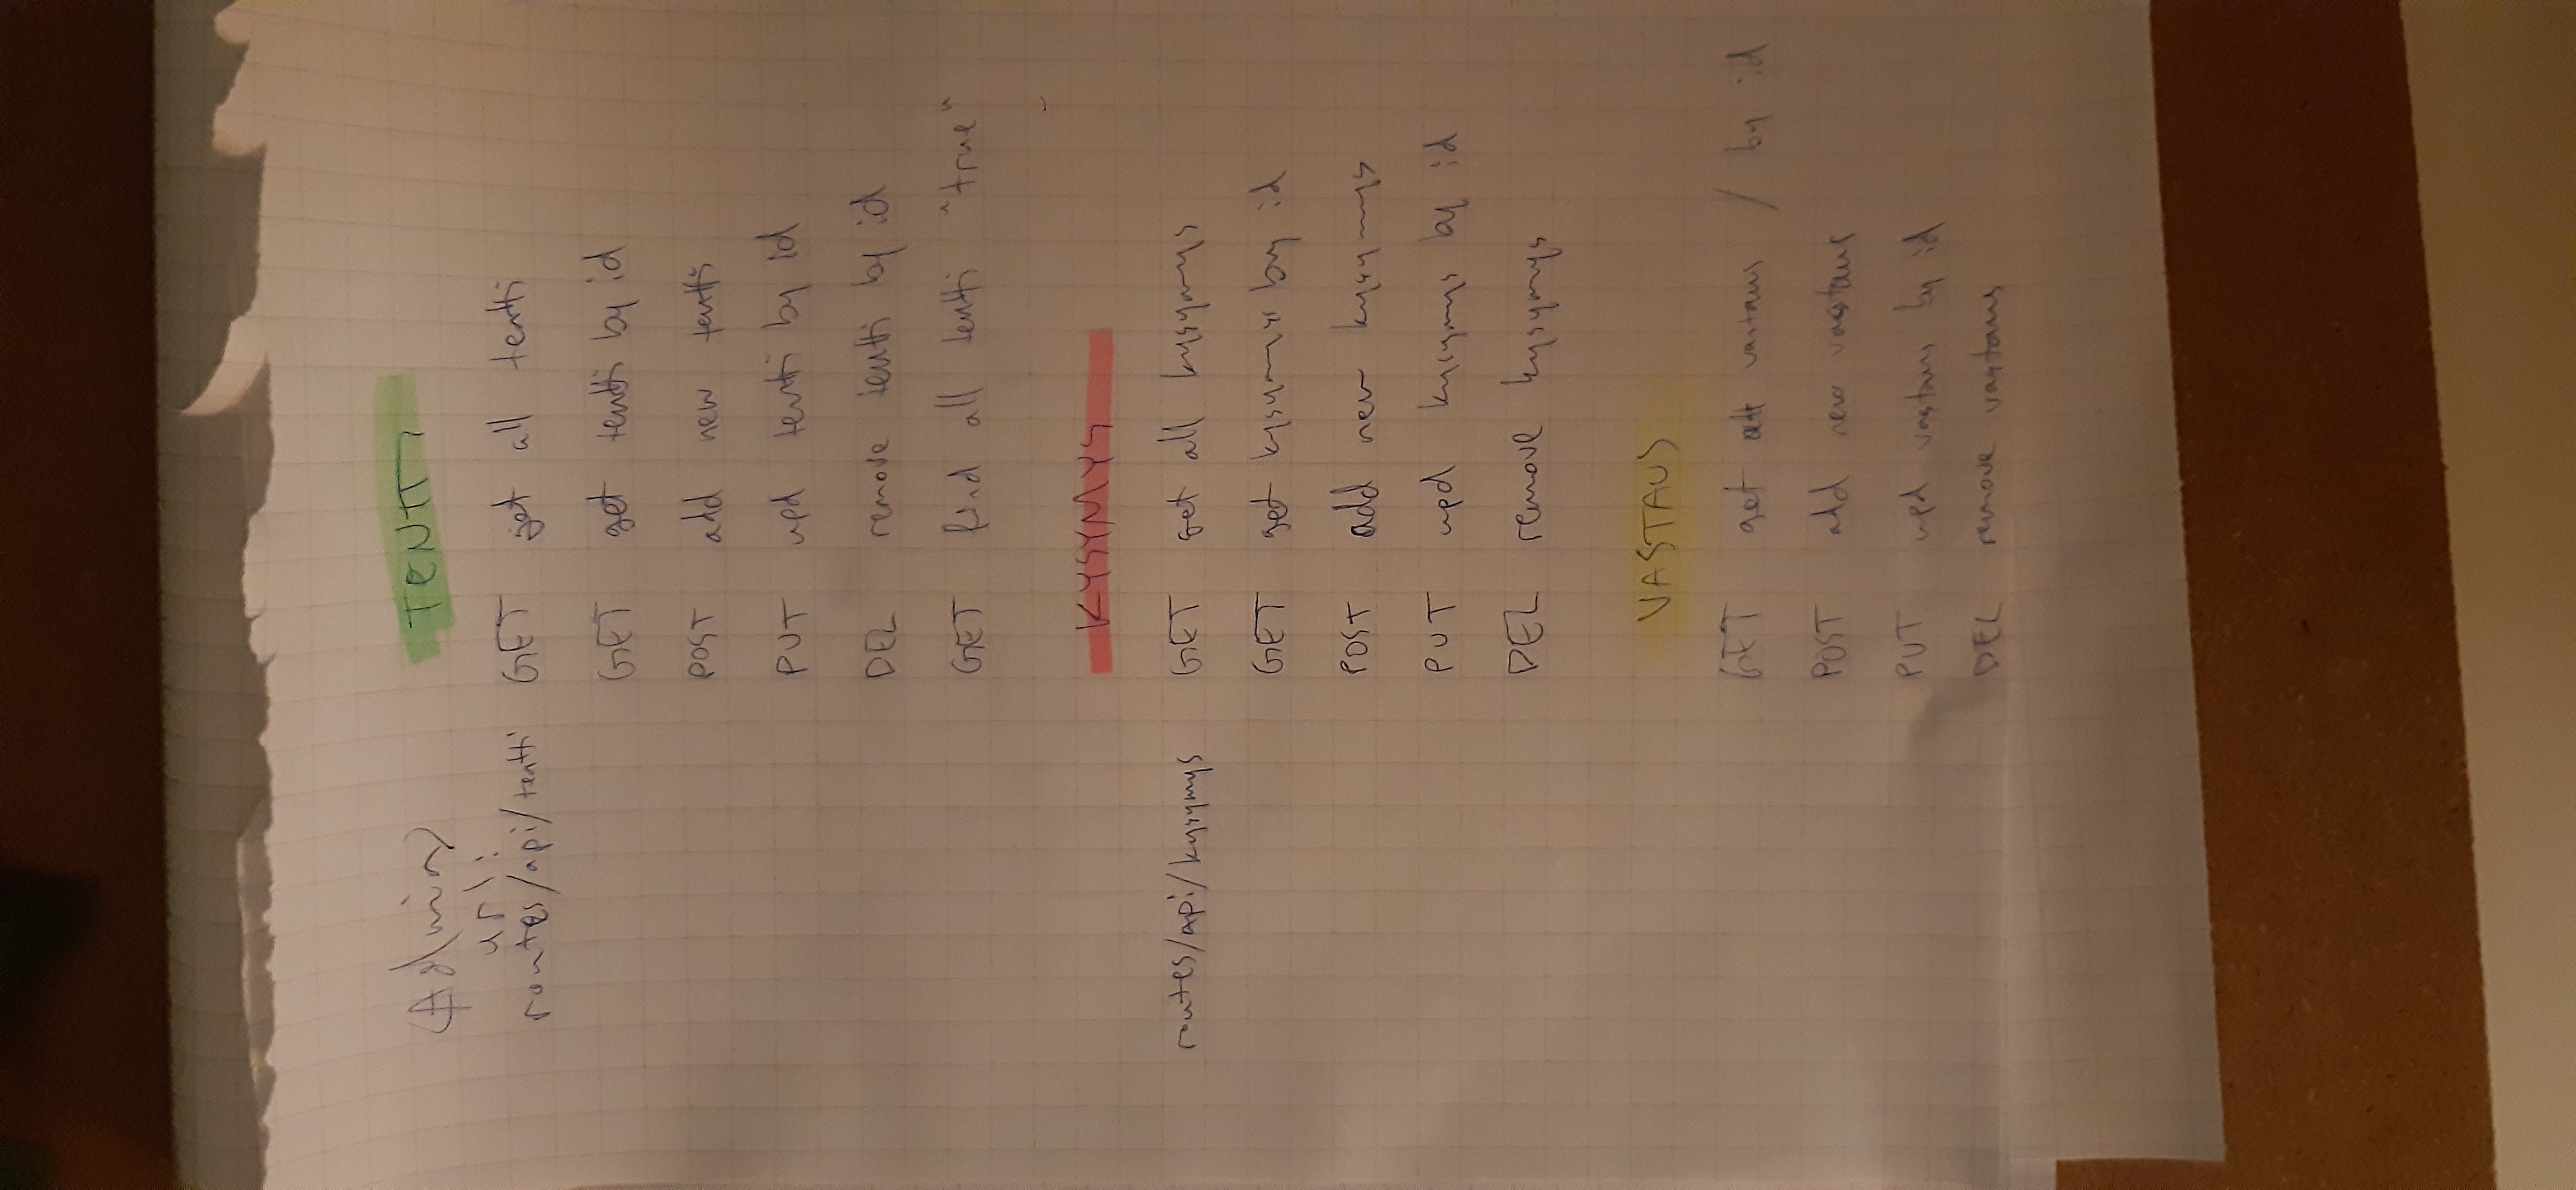 (Admin)
TENTTI
url:
routes/api/tentti GET get all tentti
GET get tentti by id
POST add new tentti
PUT upd tentti by id
DEL remove tentti by id
GET find all tentti "true"
KYSYMYS
routes/api/kysymys GET get all kysymys
GET get kysymys by id
POST add new kysymys
PUT upd kysymys by id
DEL remove kysymys
VASTAUS
GET get all vastaus / by id
POST add new vastaus
PUT upd vastaus by id
DEL remove vastaus